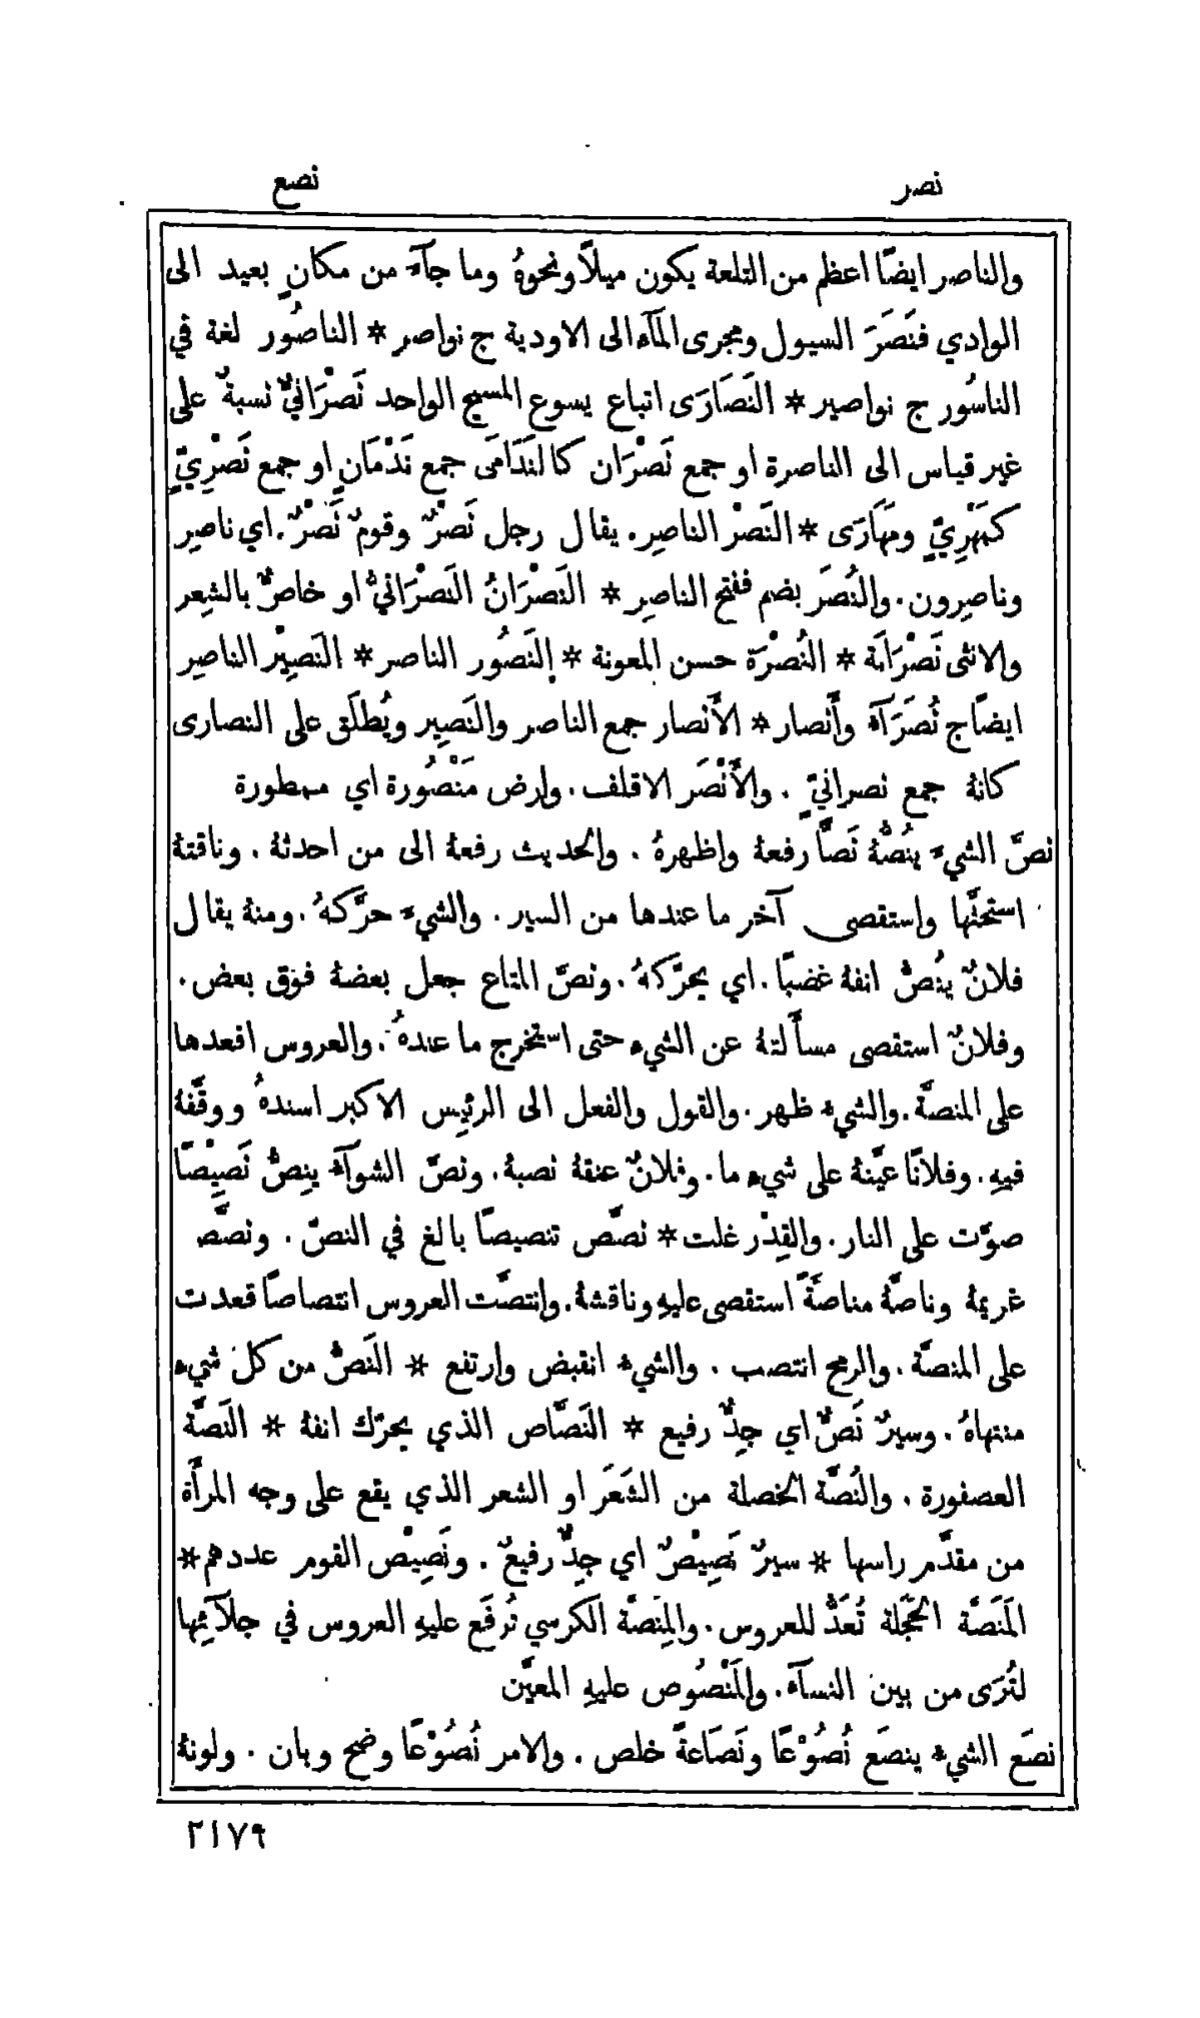 نصر
نصع
والناصر ايضًا اعظم من التلعة يكون ميلاً ونحوهُ وما جآءَ من مكانٍ بعيد الى
الوادي فنَصَرَ السيول ومجرى المآء الى الاودية ج نواصر * الناصُور لغة في
الناسُور ج نواصير * النَصَارَى اتباع يسوع المسيح الواحد نَصْرَانيٌّ نسبةٌ على
غير قياس الى الناصرة او جمع نَصْرَان كالنَدَامَى جمع نَدْمَانٍ او جمع نَصْرِيٍّ
كمَهْرِيٍّ ومَهَارَى * النَصْر الناصِر. يقال رجل نَصْرٌ وقومٌ نَصْرٌ. اي ناصِر
وناصِرون. والنُصَر بضم ففتح الناصِر * النَصْرَانُ النَصْرَانيُّ او خاصٌّ بالشِعر
والانثى نَصْرَانَة * النُصْرَة حسن المعونة * النَصُور الناصر * النَصِيْر الناصِر
ايضًا ج نُصَرَآء وأَنصار * الأَنصار جمع الناصر والنَصِير ويُطلَق على النصارى
كانهُ جمع نصرانيٍّ . والأَنْصَر الاقلف. وارض مَنْصُورة اي ممطورة
نصَّ الشيءَ ينصُّهُ نَصًّا رفعهُ واظهرهُ . والحديث رفعهُ الى من احدثهُ . وناقتهُ
استحثَّها واستقصى آخر ما عندها من السير. والشيءَ حرَّكهُ. ومنهُ يقال
فلانٌ يَنُصُّ انفهُ غضبًا. اي يحرَّكهُ. ونصَّ المتاع جعل بعضهُ فوق بعض.
وفلانٌ استقصى مسأَلتهُ عن الشيء حتى استخرج ما عندهُ. والعروس اقعدها
على المنصَّة. والشيءَ ظهر. والقول والفعل الى الرئِيس الاكبر اسندهُ ووقَّفهُ
فيهِ. وفلانًا عيَّنهُ على شيء ما. وفلانٌ عنقهُ نصبهُ. ونصَّ الشوآءُ ينِصُّ نَصِيْصًا
صوَّت على النار. والقِدْر غلت * نصَّص تنصيصًا بالغ في النصّ . ونصَّص
غريمهُ وناصَّهُ مناصَّةً استقصى عليهِ وناقشهُ. وانتصَّت العروس انتصاصًا قعدت
على المنصَّة. والرمح انتصب . والشيءُ انقبض وارتفع * النَصُّ من كل شيء
منتهاهُ. وسيرٌ نَصٌّ اي جِدٌّ رفيع * النَصَّاص الذي يحرّك انفهُ * النَصَّة
العصفورة . والنُصَّة الخصلة من الشَعَر او الشعر الذي يقع على وجه المرأَة
من مقدَّم راسها * سيرٌ نَصِيْصٌ اي جِدٌّ رفيعٌ . ونَصِيْص القوم عددهم *
المَنَصَّة الحَجَلة تُعَدُّ للعروس. والمِنَصَّة الكرسي تُرفَع عليهِ العروس في جلآئِها
لتُرَى من بين النسآء. والمَنْصُوص عليهِ المعيَّن
نصَع الشيءُ ينصَع نُصُوْعًا ونَصَاعةً خلص . والامر نُصُوْعًا وضح وبان . ولونهُ
٢١٧٩